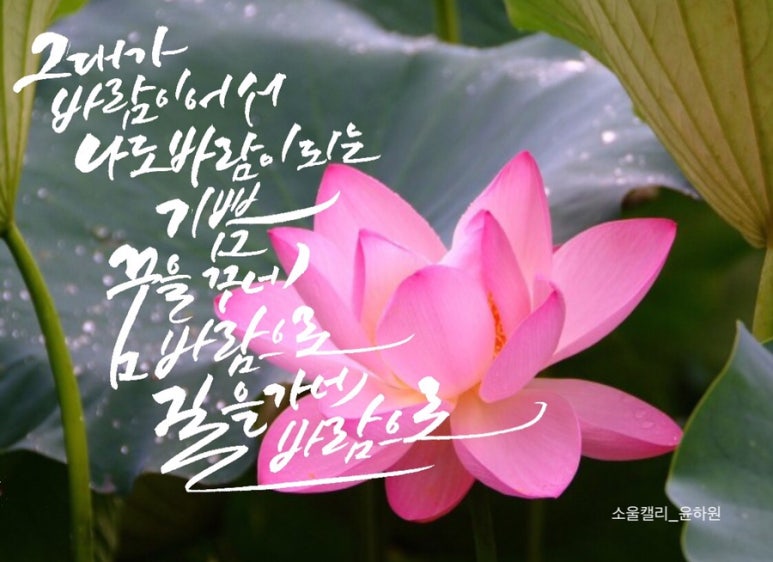 그대가
바람이어서
나도 바람이 되는
기쁨
꿈을 꾸네
바람으로
길을 가네
바람으로
소울캘리_윤하원